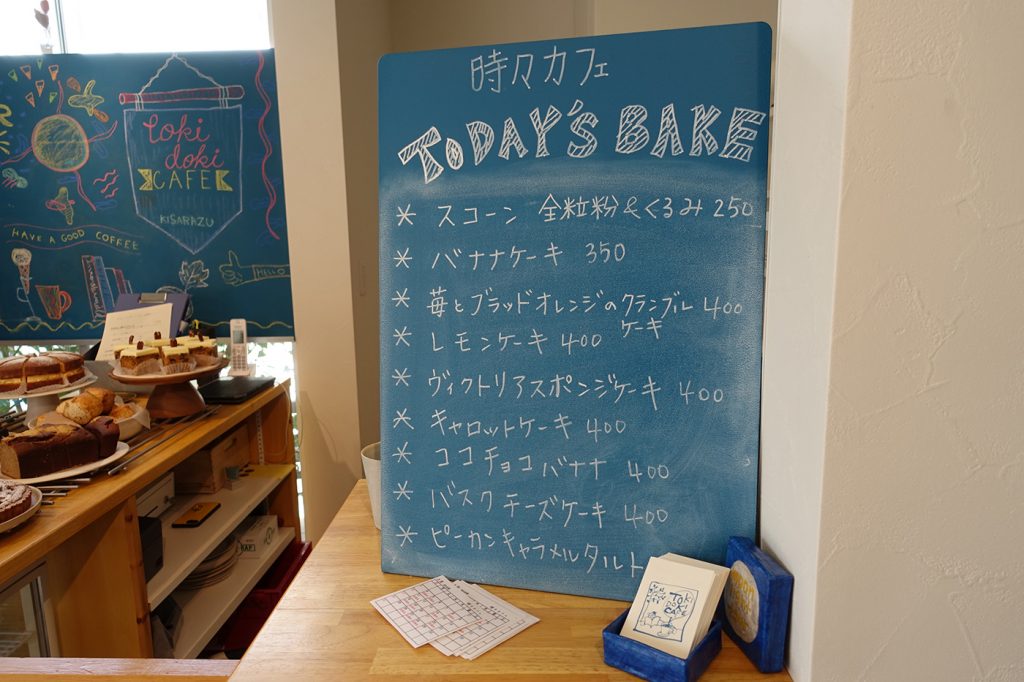 時々カフェ
TODAY'S BAKE
* スコーン 全粒粉&くるみ 250
* バナナケーキ 350
* 苺とブラッドオレンジのクランブルケーキ 400
* レモンケーキ 400
* ヴィクトリアスポンジケーキ 400
* キャロットケーキ 400
* ココチョコバナナ 400
* バスクチーズケーキ 400
* ピーカンキャラメルタルト
toki
doki
CAFE
KISARAZU
HAVE A GOOD COFFEE
HELLO
TOKI
DOKI
CAFE